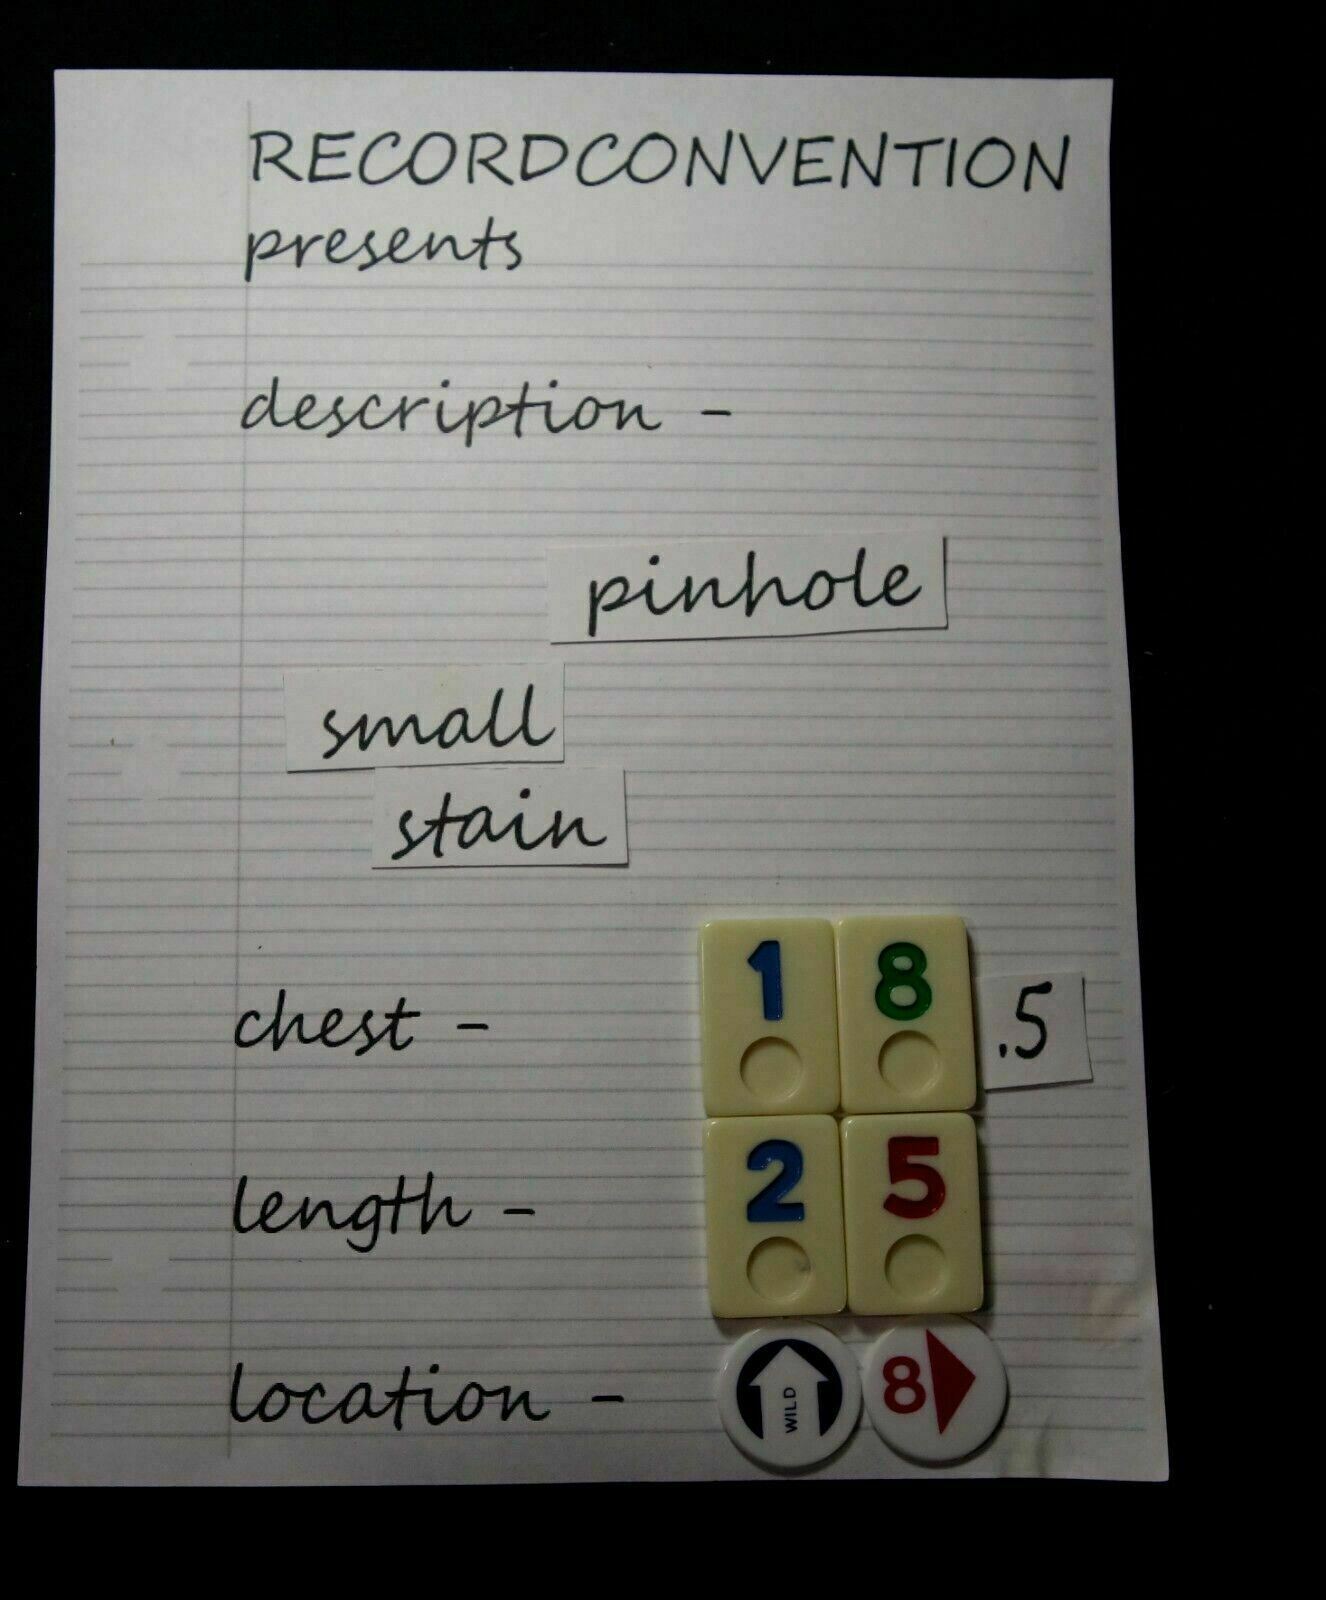 RECORDCONVENTION
presents
description -
pinhole
small
stain
chest - 18.5
length - 25
location - WILD 8